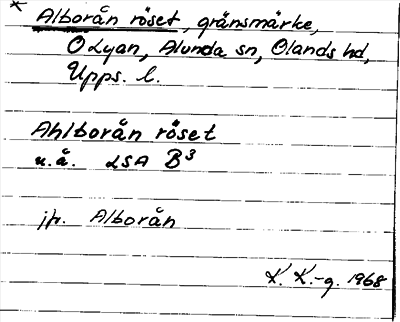 Alborån röset, gränsmärke,
O Lyan, Alunda sn, Olands hd,
Upps. l.
Ahlborån röset
u.å. LSA B3
jfr. Alborån
K. K.-g. 1968